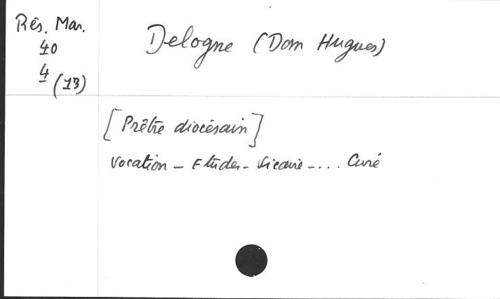 Rés. Mar.
40
4 (13)
Delogne (Dom Hugues)
[Prêtre diocésain]
Vocation - Etudes - Vicaire - ... Curé